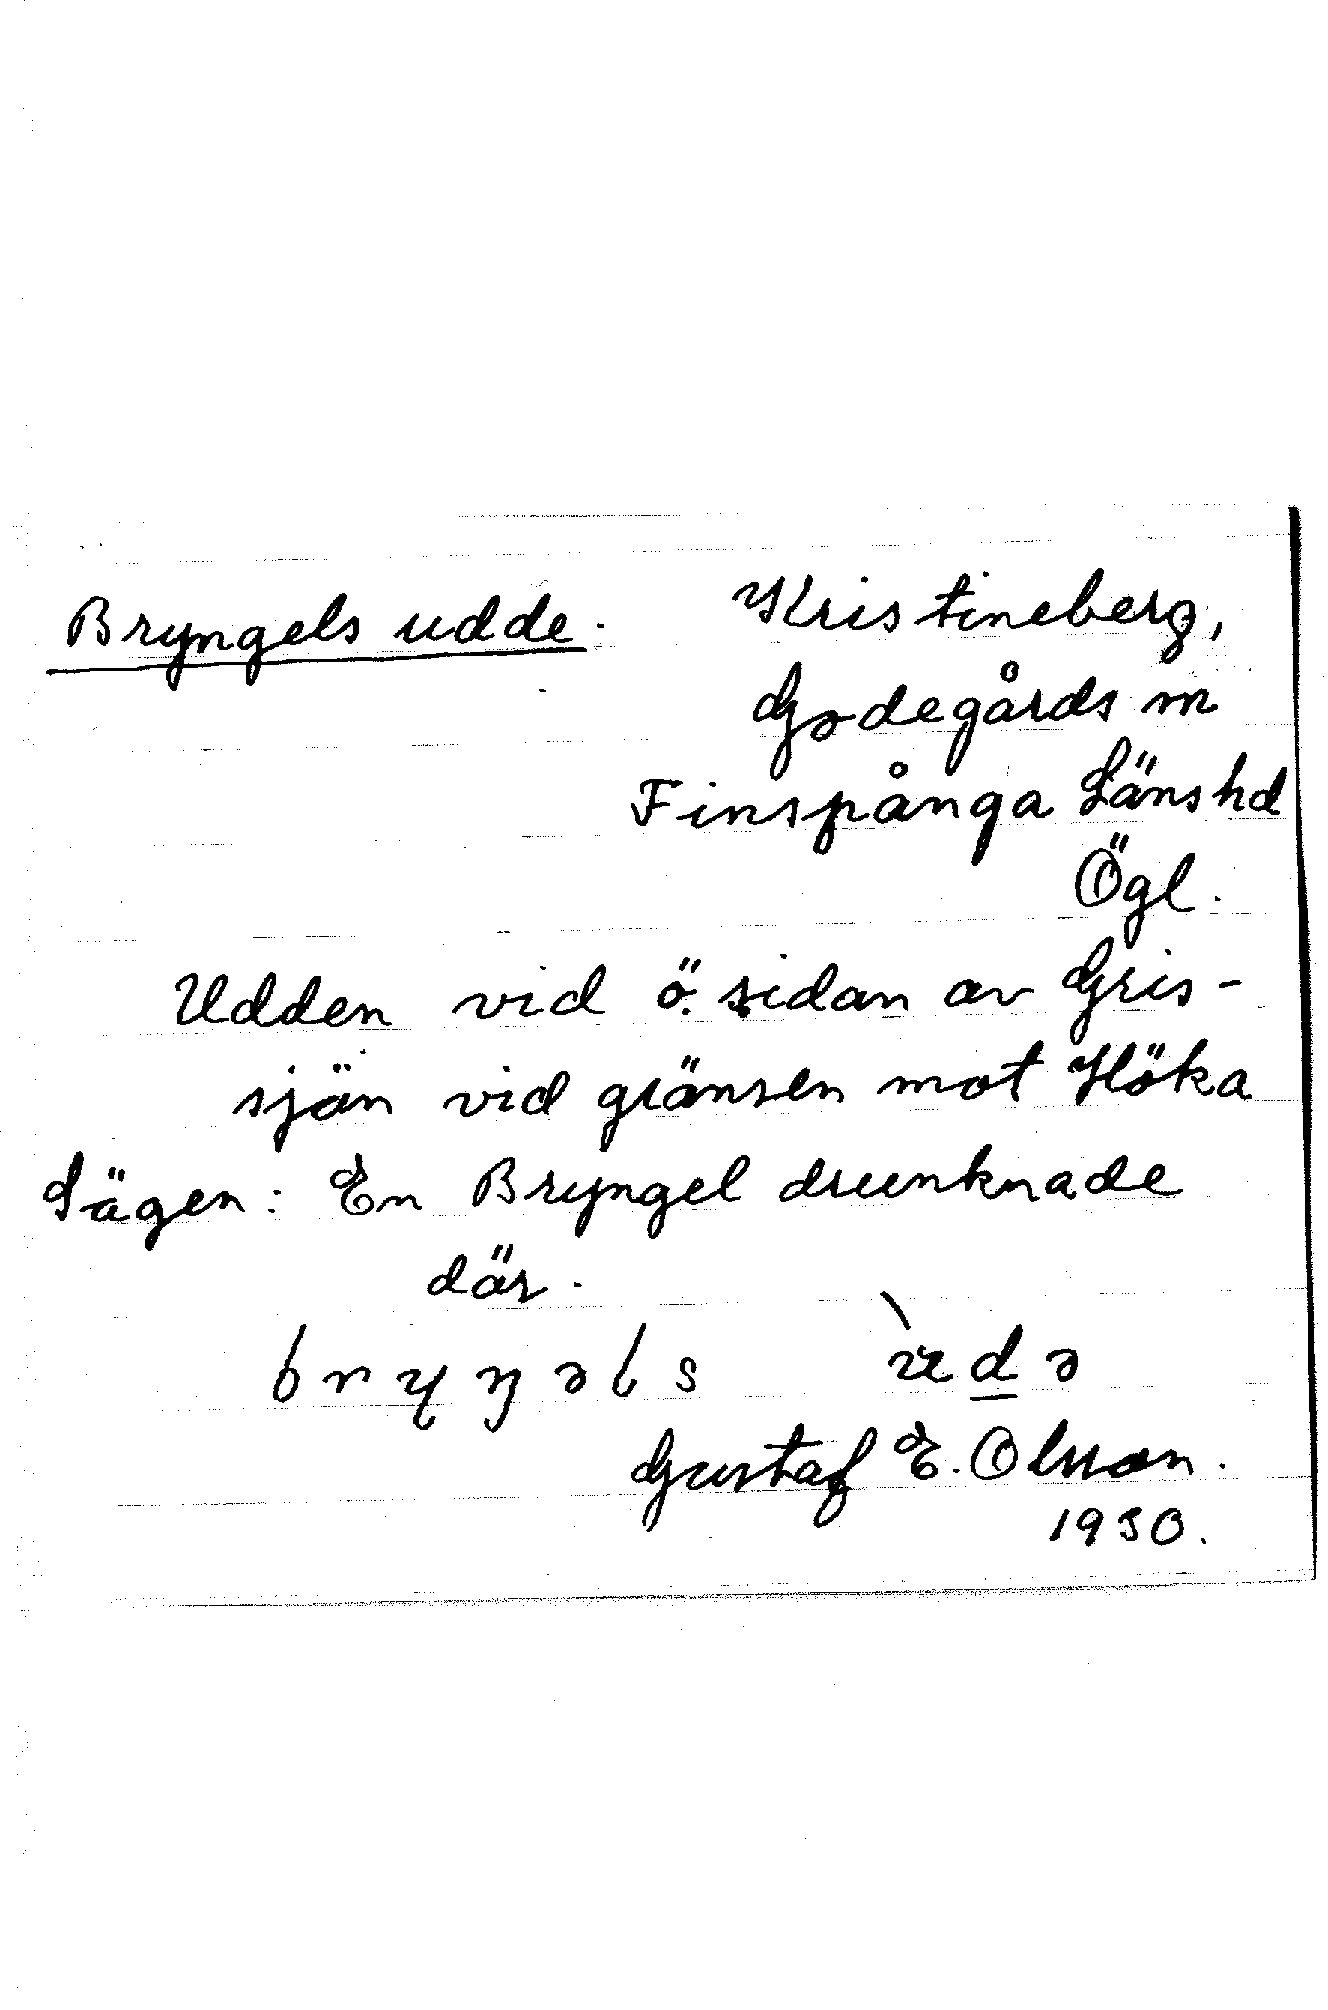 Bryngels udde. Kristineberg,
Godegårds m
Finspånga Länshd
Ögl.
Udden vid ö. sidan av Gris-
sjön vid gränsen mot Höka
Sägen: En Bryngel drunknade
där.
bryŋəls ùdə
Gustaf E. Olsson.
1930.